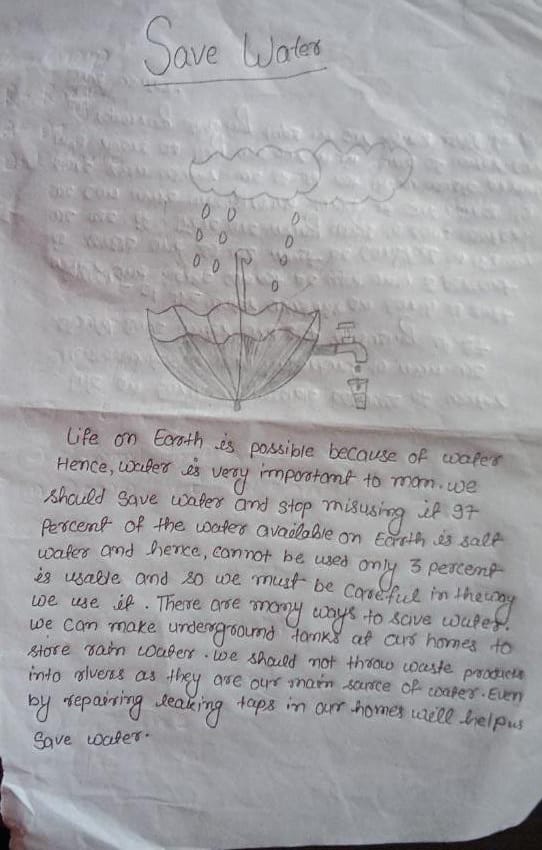 Save Water
Life on Earth is possible because of water
Hence, water is very important to man. we
should save water and stop misusing it 97
Percent of the water available on Earth is salt
water and hence, cannot be used only 3 percent
is usable and so we must be careful in the way
we use it. There are many ways to save water.
we can make underground tanks at our homes to
store rain water. we should not throw waste products
into rivers as they are our main source of water. Even
by repairing leaking taps in our homes will help us
Save water.